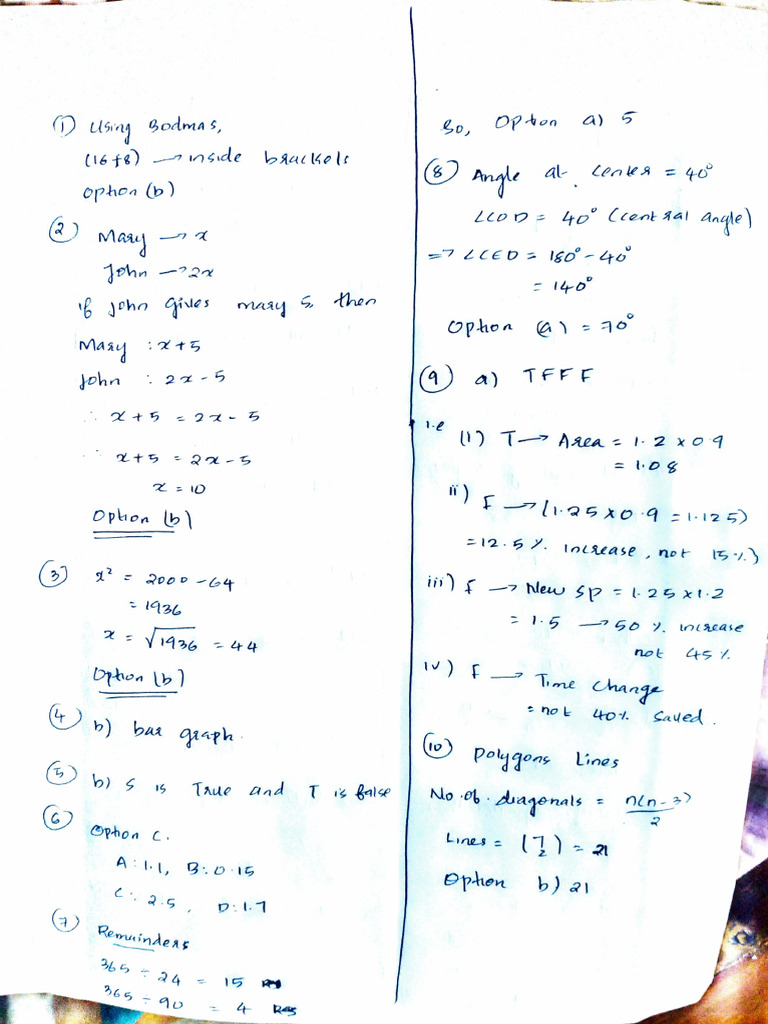 ① Using Bodmas,
(16+8) → inside brackets
option (b)
② Mary → x
John → 2x
if John gives mary 5, then
Mary : x+5
John : 2x-5
∴ x+5 = 2x-5
∴ x+5 = 2x-5
x = 10
Option (b)
③ x² = 2000-64
= 1936
x = √1936 = 44
Option (b)
④ b) bar graph.
⑤ b) S is True and T is false
⑥ Option C.
A: 1.1, B: 0.15
C: 2.5, D: 1.7
⑦ Remainders
365 ÷ 24 = 15
365 ÷ 90 = 4
So, Option a) 5
⑧ Angle at center = 40°
∠COD = 40° (central angle)
⇒ ∠CED = 180° - 40°
= 140°
Option (a) = 70°
⑨ a) TFFF
i.e
(i) T → Area = 1.2 x 0.9
= 1.08
ii) F → (1.25 x 0.9 = 1.125)
= 12.5 %. increase, not 15%)
iii) F → New SP = 1.25 x 1.2
= 1.5 → 50 %. increase
not 45%.
iv) F → Time change
= not 40% saved.
⑩ Polygons Lines
No. of. diagonals = n(n-3)/2
Lines = (7 2) = 21
Option b) 21